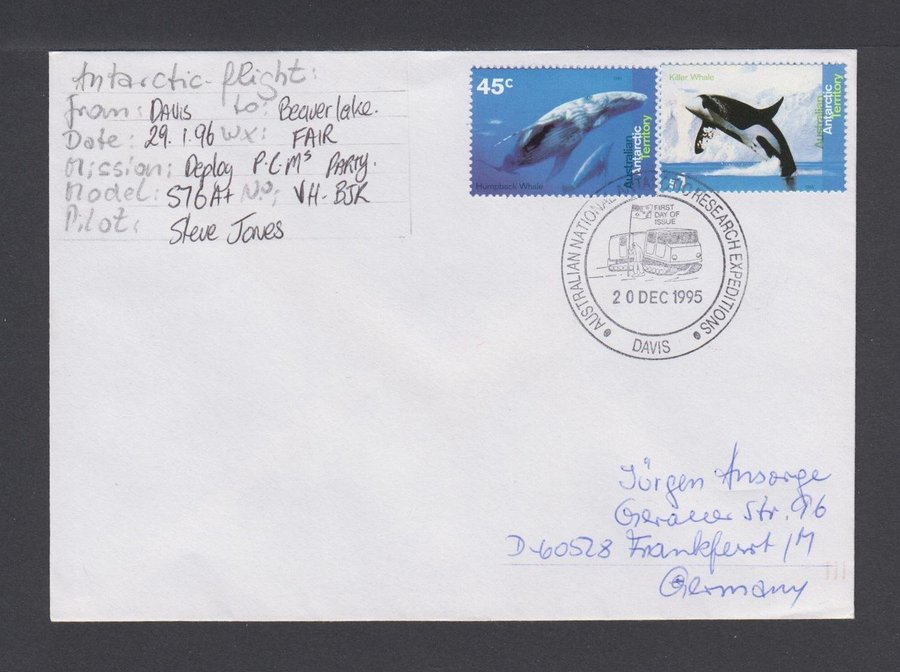 Antarctic-flight:
From: DAVIS to: Beaver lake.
Date: 29.1.96 WX: FAIR
Mission: Deploy P.C.Ms PARTY.
Model: S76A+ No; VH-BJK
Pilot: Steve Jones
45c
Humpback Whale
Australian
Antarctic
Territory
Killer Whale
Australian
Antarctic
Territory
AUSTRALIAN NATIONAL RESEARCH EXPEDITIONS
FIRST
DAY OF
ISSUE
20 DEC 1995
DAVIS
Jürgen Ansorge
Gerauer Str. 96
D-60528 Frankfurt/M
Germany